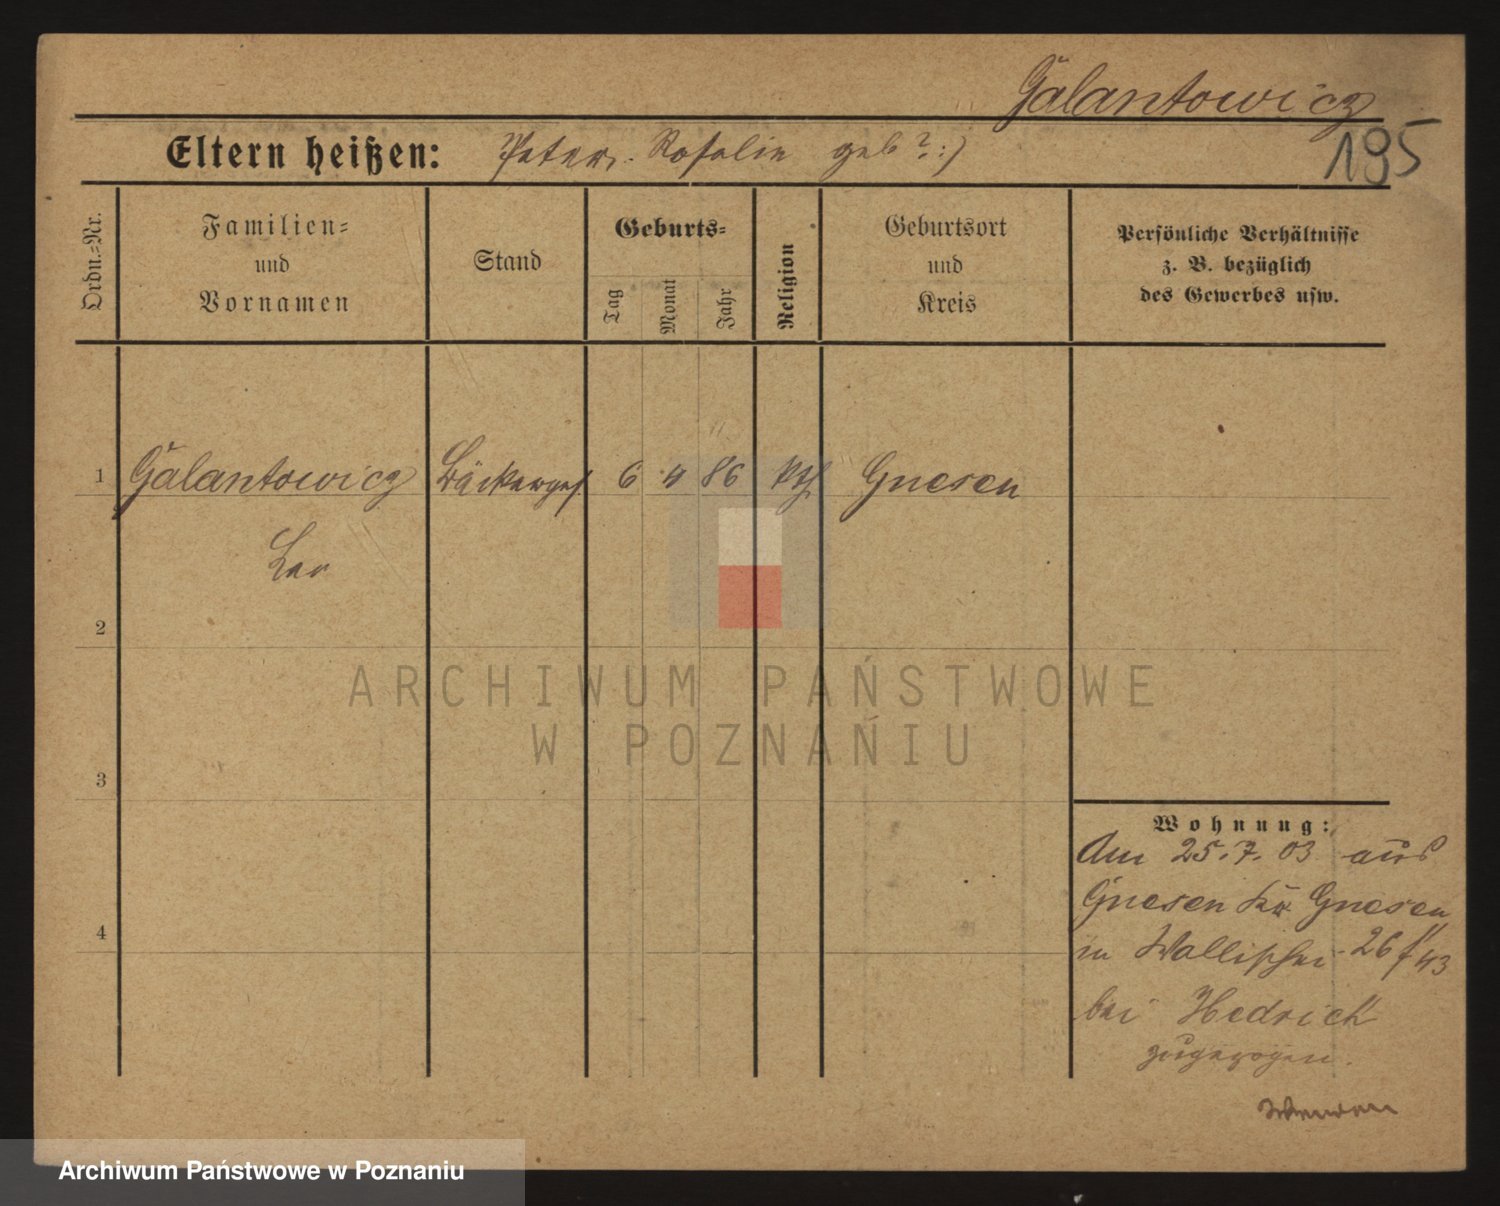 Galantowicz
195
Eltern heißen: Peter. Rosalie geb ?:)
Ordn.-Nr.
Familien- und Vornamen
Stand
Geburts-
Tag
Monat
Jahr
Religion
Geburtsort und Kreis
Persönliche Verhältnisse
z. B. bezüglich
des Gewerbes usw.
1 Galantowicz Bäckerges. 6 4 86 kth Gnesen
Leo
2
3
4
Wohnung:
Am 25.7.03 aus
Gnesen Kr. Gnesen
in Wallischei
bei Hedrich
zugezogen.
ARCHIWUM PAŃSTWOWE
W POZNANIU
Archiwum Państwowe w Poznaniu